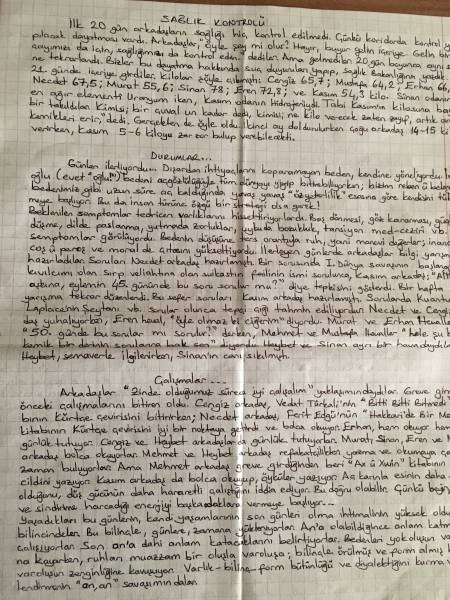 SAĞLIK KONTROLÜ
İlk 20 gün arkadaşların sağlığı hiç kontrol edilmedi. Çünkü koridorda kontrol ya
pılacak dayatması vardı. Arkadaşlar, öyle şey mi olur? Hayır, buyur gelin içeriye. Gelin bir
çayımızı da için, sağlığımızı da kontrol edin! dediler. Ama gelmediler. 20 gün boyunca aynı
ne tekrarlandı. Bizler bu dayatma hakkında suç duyuruları yapıp, Sağlık Bakanlığına yazdık
21. günde içeriye girdiler, kilolar şöyle çıkmıştı: Cengiz 65,7; Mustafa 64,2; Erhan 66,
Necdet 67,5; Murat 55,6; Sinan 78; Eren 72,8; ve Kasım 54,3 kilo. Sinan odanın
en ağır elementi Uranyum iken, Kasım odanın Hidrojeniydi. Tabi Kasımın kilosuna
bir takıldılar. Kimisi; bir çuval un kadar dedi, kimisi; ne kilo verecek zaten
kemikleri erir," dedi. Gerçekten de öyle oldu. İkinci ay doldurulurken çoğu arkadaş 14-15 ki
verirken, Kasım 5-6 kiloyu zar zor bulup verebilecekti.
DURUMLAR...
Günler ilerliyordu... Dışarıdan ihtiyaçlarını koparamayan beden, kendine yöneliyordu.
oğlu (evet "oğlu"!) bedeni açgözlülüğüyle tüm dünyayı yiyip bitirebiliyorken; bizim
bedenimiz gibi uzun süre aç kaldığında yavaş yavaş "özyeterlilik" esasına göre kendisini
meye başlıyor. Bu da insan türüne özgü bir strateji olsa gerek!
Beklenilen semptomlar tedricen varlıklarını hissettiriyorlardı. Baş dönmesi, göz kararması,
düşme, dilde paslanma, yutmada zorluklar, uykuda bozukluk, tansiyon med-ceziri vb.
semptomlar görülüyordu. Bedenin düşüşüne ters orantıyla ruh, yani manevi değerler; inanç
coşku parti ve moral de çıtasını yükseltiyordu. İlerleyen günlerde arkadaşlar bilgi yarışma
hazırladılar. Soruları Necdet arkadaş hazırlamıştı. Bir sorusunda I. Dünya savaşının başlama
kıvılcımı olan Sırp veliahtına olan suikastın failinin ismi sorulunca, Kasım arkadaş; "Al
aşkına, eylemin 45. gününde bu soru sorulur mu?" diye tepkisini gösterdi. Bir hafta
yarışma tekrar düzenlendi. Bu sefer soruları Kasım arkadaş hazırlamıştı. Sorularda Kuantum
Laplace'nin Şeytanı vb. sorular olunca tepeyi çığı tahmin ediliyordur. Necdet ve Cengiz
baş yuhalıyorken, Eren heval, "öyle olmaz ki ciğerim" diyordu. Murat ve Erhan Hevaller
"50. günde bu sorular mı sorulur?" derken, Mehmet ve Mustafa Hevaller "hele şu
kemik bir dahin sorularına bak sen" diyordu. Heybet ve Sinan ayrı bir havadaydılar
Heybet, semaverle ilgilenirken, Sinan'ın canı sıkılmıştı.
Çalışmalar...
Arkadaşlar "Zinde olduğumuz sürece iyi çalışalım" yaklaşımındaydılar. Greve girme
önceki çalışmalarını bitiren oldu. Cengiz arkadaş, Vedat Türkali'nin "Bitti Bitti Bitmedi"
bının Kürtçe çevirisini bitirirken; Necdet arkadaş, Ferit Edgü'nün "Hakkari'de Bir Me
kitabının Kürtçe çevirisini iyi bir noktaya getirdi ve bolca okuyor. Erhan, hem okuyor hem
günlük tutuyor. Cengiz ve Heybet arkadaşlarda günlük tutuyorlar. Murat, Sinan, Eren ve M
arkadaş bolca okuyorlar. Mehmet ve Heybet arkadaş refakatçilikten yazmaya ve okumaya ço
zaman buluyorlar. Ama Mehmet arkadaş greve girdiğinden beri "Ax û Xwîn" kitabının
cildini yazıyor. Kasım arkadaş da bolca okuyup, öyküler yazıyor. Aç karınla esinin daha
olduğunu, düş gücünün daha hararetli çalıştığını iddia ediyor. Bu doğru olabilir. Çünkü beyin
ve sindirime harcadığı enerjiyi başka odaklara vermeye başlıyor...
Yaşadıkları bu günlerin, kendi yaşamlarının son günleri olma ihtimalinin yüksek olduğu
bilincindeler. Bu bilinçle, günlere, zamana yükleniyorlar. An'a olabildiğince anlam katma
çalışıyorlar. Son an'a dahi anlam katacaklarını belirtiyorlar. Bedenleri yokoluşun
na kayarken, ruhları muazzam bir oluşla varoluşa; bilinçle örülmüş ve form almış
varoluşun zenginliğine kavuşuyor. Varlık-bilinç-form bütünlüğü ve diyalektiğini kurma
lendirmenin "an, an" savaşımındalar.